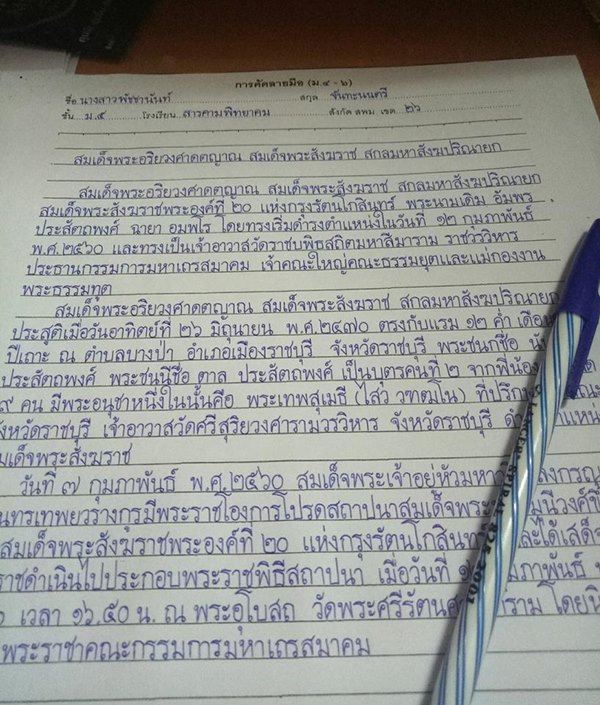 การคัดลายมือ (ม.๔ - ๖)
ชื่อ นางสาวพัชชานันท์ สกุล จันทะนนตรี
ชั้น ม.๕ โรงเรียน สารคามพิทยาคม สังกัด สพม. เขต ๒๖
สมเด็จพระอริยวงศาคตญาณ สมเด็จพระสังฆราช สกลมหาสังฆปริณายก
สมเด็จพระอริยวงศาคตญาณ สมเด็จพระสังฆราช สกลมหาสังฆปริณายก
สมเด็จพระสังฆราชพระองค์ที่ ๒๐ แห่งกรุงรัตนโกสินทร์ พระนามเดิม อัมพร
ประสัตถพงศ์ ฉายา อมพโร โดยทรงเริ่มดำรงตำแหน่งในวันที่ ๑๒ กุมภาพันธ์
พ.ศ.๒๕๖๐ และทรงเป็นเจ้าอาวาสวัดราชบพิธสถิตมหาสีมาราม ราชวรวิหาร
ประธานกรรมการมหาเถรสมาคม เจ้าคณะใหญ่คณะธรรมยุตและแม่กองงาน
พระธรรมทูต
สมเด็จพระอริยวงศาคตญาณ สมเด็จพระสังฆราช สกลมหาสังฆปริณายก
ประสูติเมื่อวันอาทิตย์ที่ ๒๖ มิถุนายน พ.ศ.๒๔๗๐ ตรงกับแรม ๑๒ ค่ำ
ปีเถาะ ณ ตำบลบางป่า อำเภอเมืองราชบุรี จังหวัดราชบุรี พระชนกชื่อ
ประสัตถพงศ์ พระชนนีชื่อ ตาล ประสัตถพงศ์ เป็นบุตรคนที่ ๒ จากพี่น้อง
๙ คน มีพระอนุชาหนึ่งในนั้นคือ พระเทพสุเมธี (ไสว วฑฒโน) ที่ปรึกษา
จังหวัดราชบุรี เจ้าอาวาสวัดศรีสุริยวงศารามวรวิหาร จังหวัดราชบุรี
สมเด็จพระสังฆราช
วันที่ ๗ กุมภาพันธ์ พ.ศ.๒๕๖๐ สมเด็จพระเจ้าอยู่หัวมหา ลงกรณ
นทรเทพยวรางกูรมีพระราชโองการโปรดสถาปนาสมเด็จพระ มุนีวงศ์
สมเด็จพระสังฆราชพระองค์ที่ ๒๐ แห่งกรุงรัตนโกสินทร์ และได้เสด็จ
ราชดำเนินไปประกอบพระราชพิธีสถาปนา เมื่อวันที่ กุมภาพันธ์
เวลา ๑๖.๕๐ น. ณ พระอุโบสถ วัดพระศรีรัตน โดย
พระราชาคณะกรรมการมหาเถรสมาคม